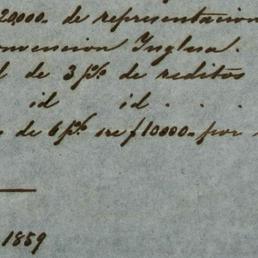 20000. de representacion
onvencion Inglesa.
l de 3 p% de reditos
id id . . .
s de 6 p% $10000. por
1859